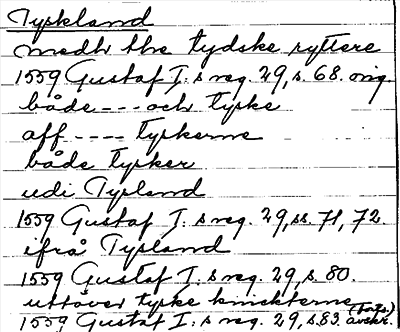 Tyskland
medh the tydske ryttere
1559 Gustaf I:s reg. 29, s. 68. orig.
både --- och tyske
aff ---- Tyskerne
både tysker
udi Tysland
1559 Gustaf I:s reg. 29, ss. 71, 72
ifrå Tysland
1559 Gustaf I:s reg. 29, s. 80.
utöver tyske knickterne
1559 Gustaf I:s reg. 29, s. 83. avskr.